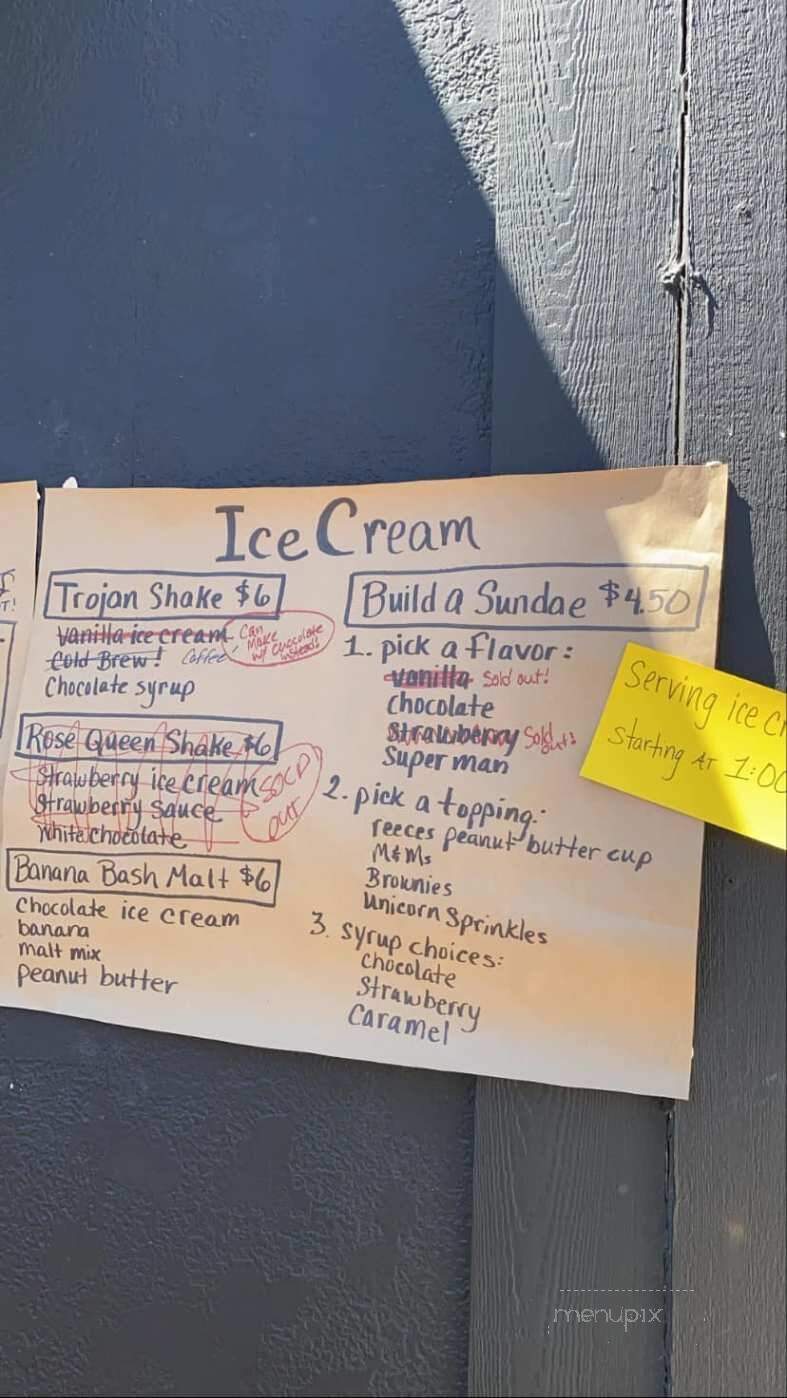 Ice Cream
Trojan Shake $6
Vanilla ice cream
Can Make w/ chocolate instead!
Cold Brew! Coffee
Chocolate syrup
Rose Queen Shake $6
Strawberry ice cream
Strawberry Sauce
White Chocolate
SOLD OUT
Banana Bash Malt $6
Chocolate ice cream
banana
malt mix
peanut butter
Build a Sundae $4.50
1. pick a flavor:
vanilla Sold out!
Chocolate
Strawberry Sold out!
Super man
2. pick a topping:
reeces peanut butter cup
M&Ms
Brownies
Unicorn Sprinkles
3. Syrup choices:
Chocolate
Strawberry
Caramel
Serving ice cr
Starting AT 1:00
menupix